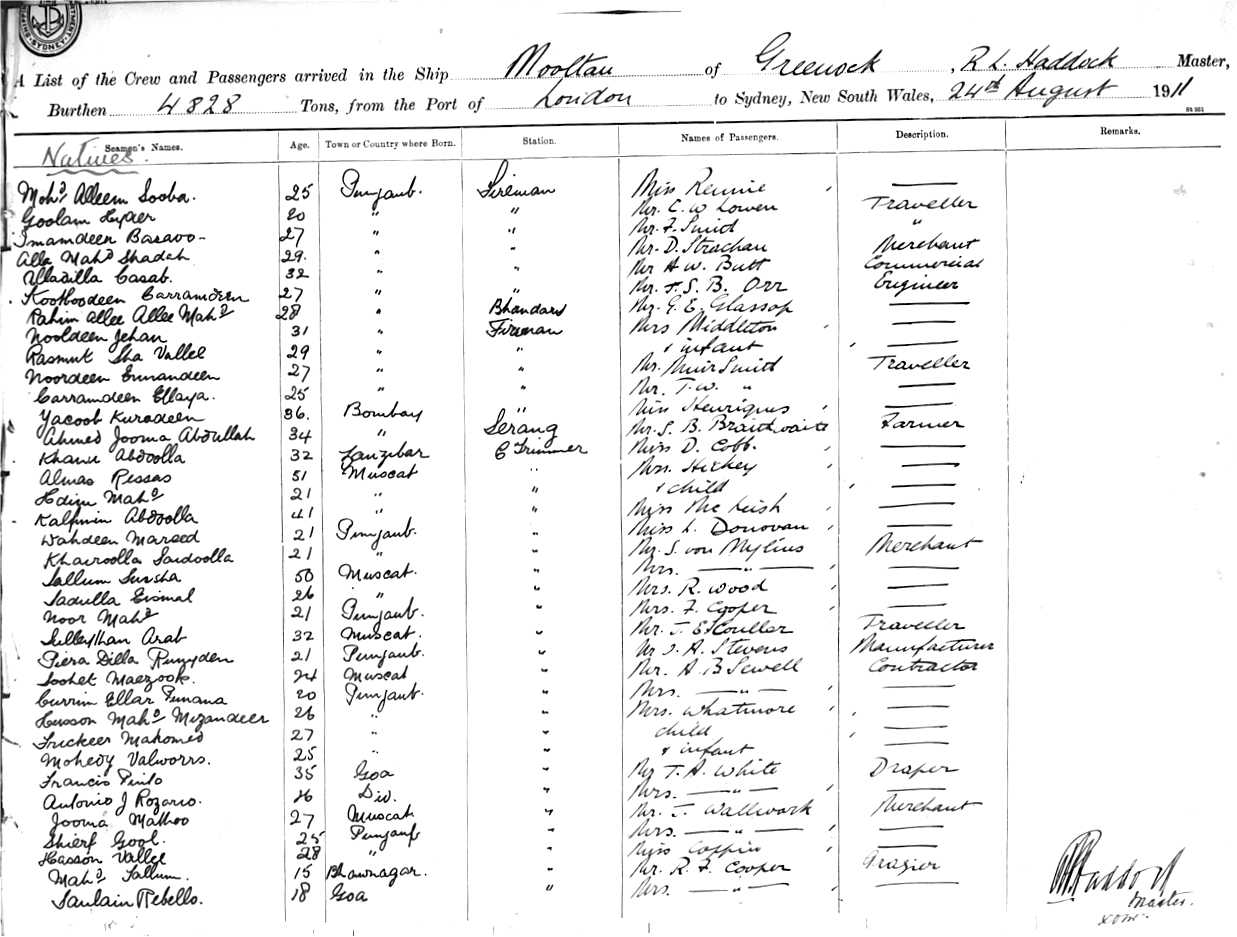 SYDNEY
A List of the Crew and Passengers arrived in the Ship Mooltan of Greenock , R L. Haddock Master,
Burthen 4828 Tons, from the Port of London to Sydney, New South Wales, 24th August 1911
Seamen's Names. Age. Town or Country where Born. Station. Names of Passengers. Description. Remarks.
Natives.
Mohd Alleem Sooba. 25 Punjaub. Fireman Miss Rennie —
Goolam Hyder 20 " " Mr. C. W Lowen Traveller
Imamdeen Basavo - 27 " " Mr. F. Smid "
Alla Mahd Shadeh 29. " " Mr. D. Strachan Merchant
Alladilla Casab. 32 " " Mr A. W. Butt Commercial
Kootboodeen Carramdeen 27 " " Mr. J. S. B. Orr Engineer
Rahim Allee Allee Mahd 28 " Bhandary Mr. G. E. Glassop —
Nooldeen Jehan 31 " Fireman Mrs Middleton —
Rasmut Sha Vallel 29 " " & infant —
Noordeen Emandeen 27 " " Mr. Muir Smith Traveller
Carramdeen Ellaya. 25 " " Mr. T. W. " —
Yacoob Kuradeen 36. Bombay " Miss Henriques —
Ahmed Jooma Abdullah 34 " Serang Mr. S. B. Braithwaite Farmer
Khamis Abdoolla 32 Zanzibar C Trimmer Miss D. Cobb. —
Almas Pessas 51 Muscat " Mrs. Hickey —
Mahd 21 " " & child —
Abdoolla 41 " " Miss Mc Leish —
Wahdeen Marsed 21 Punjaub. " Miss L. Donovan —
Khairoolla Saidoolla 21 " " Mr. S. von Mylius Merchant
Sallum Sunsha 50 Muscat. " Mrs. — " — —
Sadulla Esmal 26 " " Mrs. R. Wood —
Noor Mahd 21 Punjaub. " Mrs. F. Cooper —
Arab 32 Muscat. " Mr. J. Traveller
Piera Dilla 21 Punjaub. " Mr J. A. Stevens Manufacturer
Maezook. 24 Muscat " Mr. A B Sewell Contractor
Currim Ellar 20 Punjaub. " Mrs. — " — —
Husson Mahd Mizandeer 26 " " Mrs. Whatmore —
Fuckeer Mahomed 27 " " child —
Mohedy Valworrs. 25 " & infant —
Francis Pinto 35 Goa " Mr T. A. White Draper
Antonio J Rozario. 26 Diu. " Mrs. — " — —
Jooma Mathoo 27 Muscat " Mr. J. Wallwork Merchant
Shierf Gool. 25 Punjaub " Mrs. — " — —
Hasson Vallee 28 " " Miss Coffin —
Mahd Sallum. 15 Bhawnagar. " Mr. R. F. Cooper Grazier
Saulain Rebello. 18 Goa " Mrs. — " — —
R L Haddock
Master.